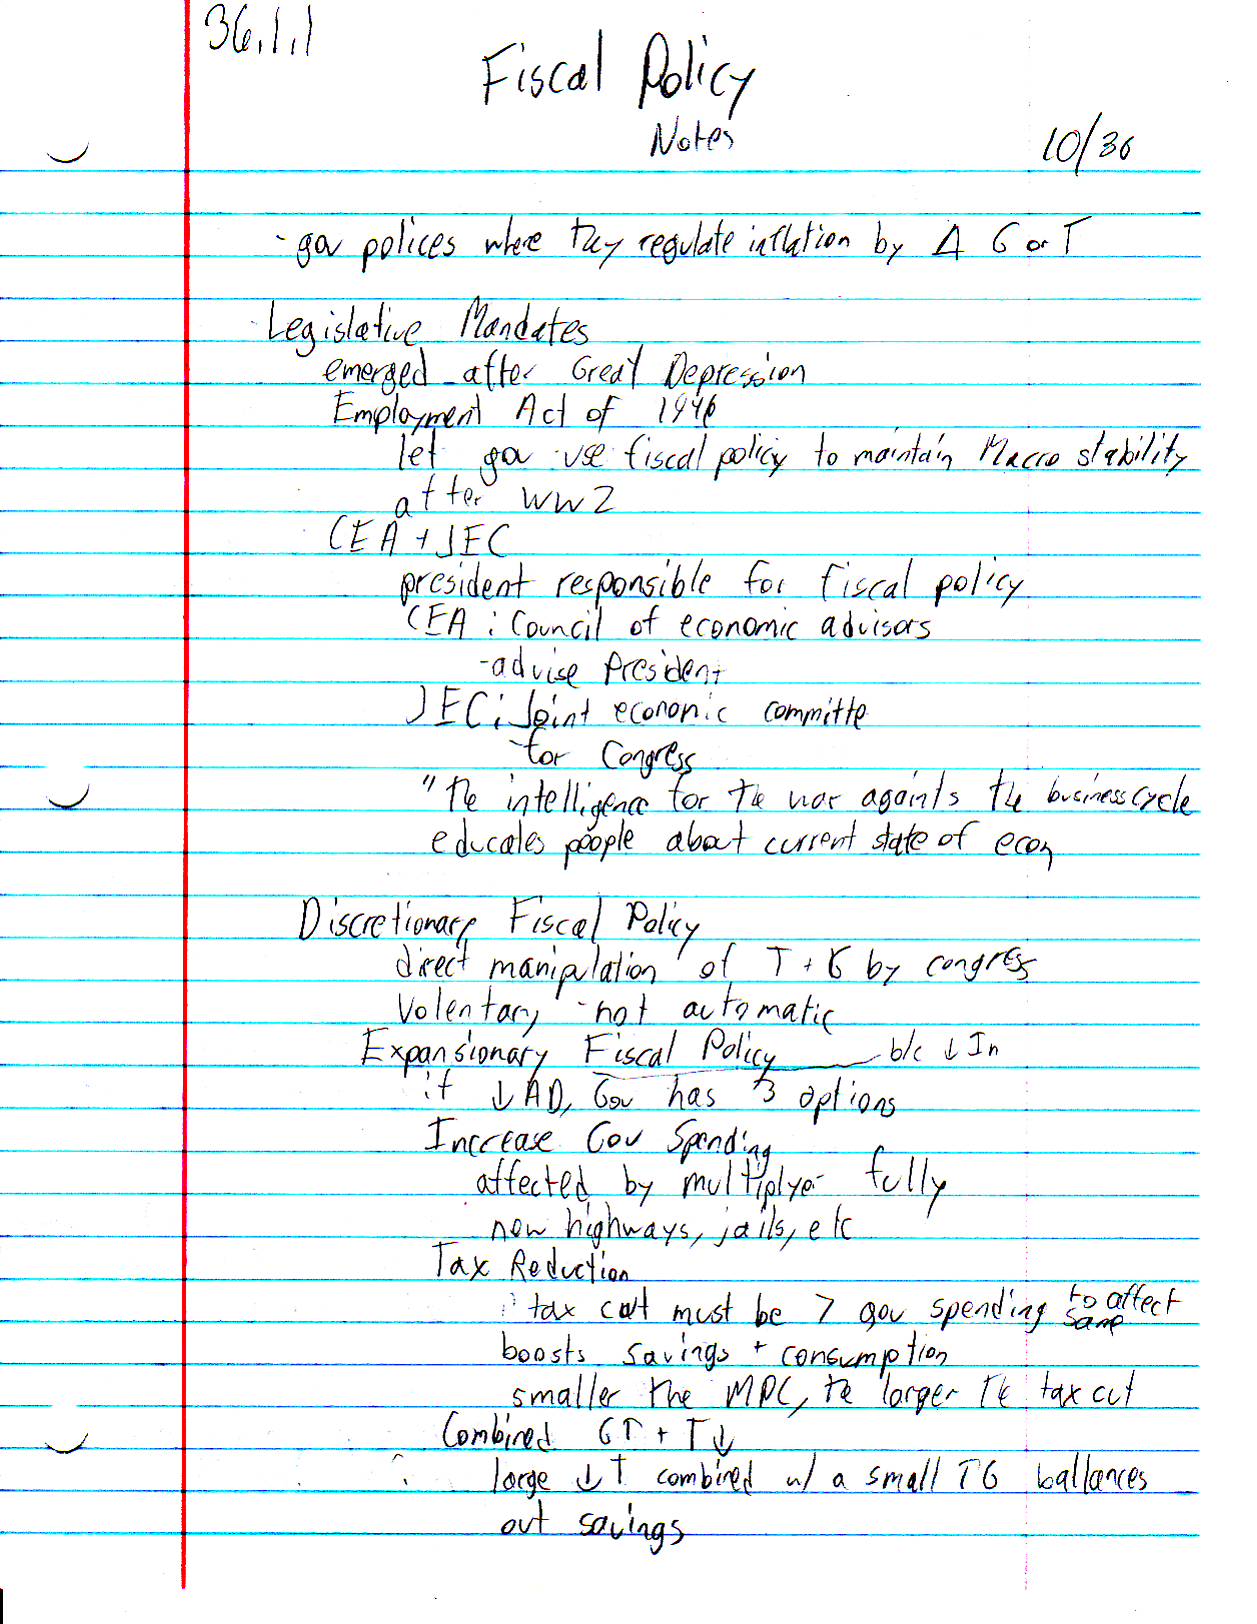 36.1.1
Fiscal Policy
Notes
10/30
- gov polices where they regulate inflation by Δ G or T
- Legislative Mandates
emerged after Great Depression
Employment Act of 1946
let gov use fiscal policy to maintain Macro stability
after WW2
CEA + JEC
president responsible for fiscal policy
CEA : Council of economic advisors
- advise President
JEC : Joint economic committe
- for Congress
" The intelligence for the war againts the business cycle
educates people about current state of econ
Discretionary Fiscal Policy
direct manipulation of T + G by congress
Volentary - not automatic
Expansionary Fiscal Policy b/c ↓ In
if ↓ AD, Gov has 3 options
Increase Gov Spending
affected by multiplyer fully
new highways, jails, etc
Tax Reduction
tax cut must be > gov spending to affect same
boosts savings + consumption
smaller the MPC, the larger the tax cut
Combined G↑ + T↓
large ↓T combined w/ a small ↑G ballances
out savings